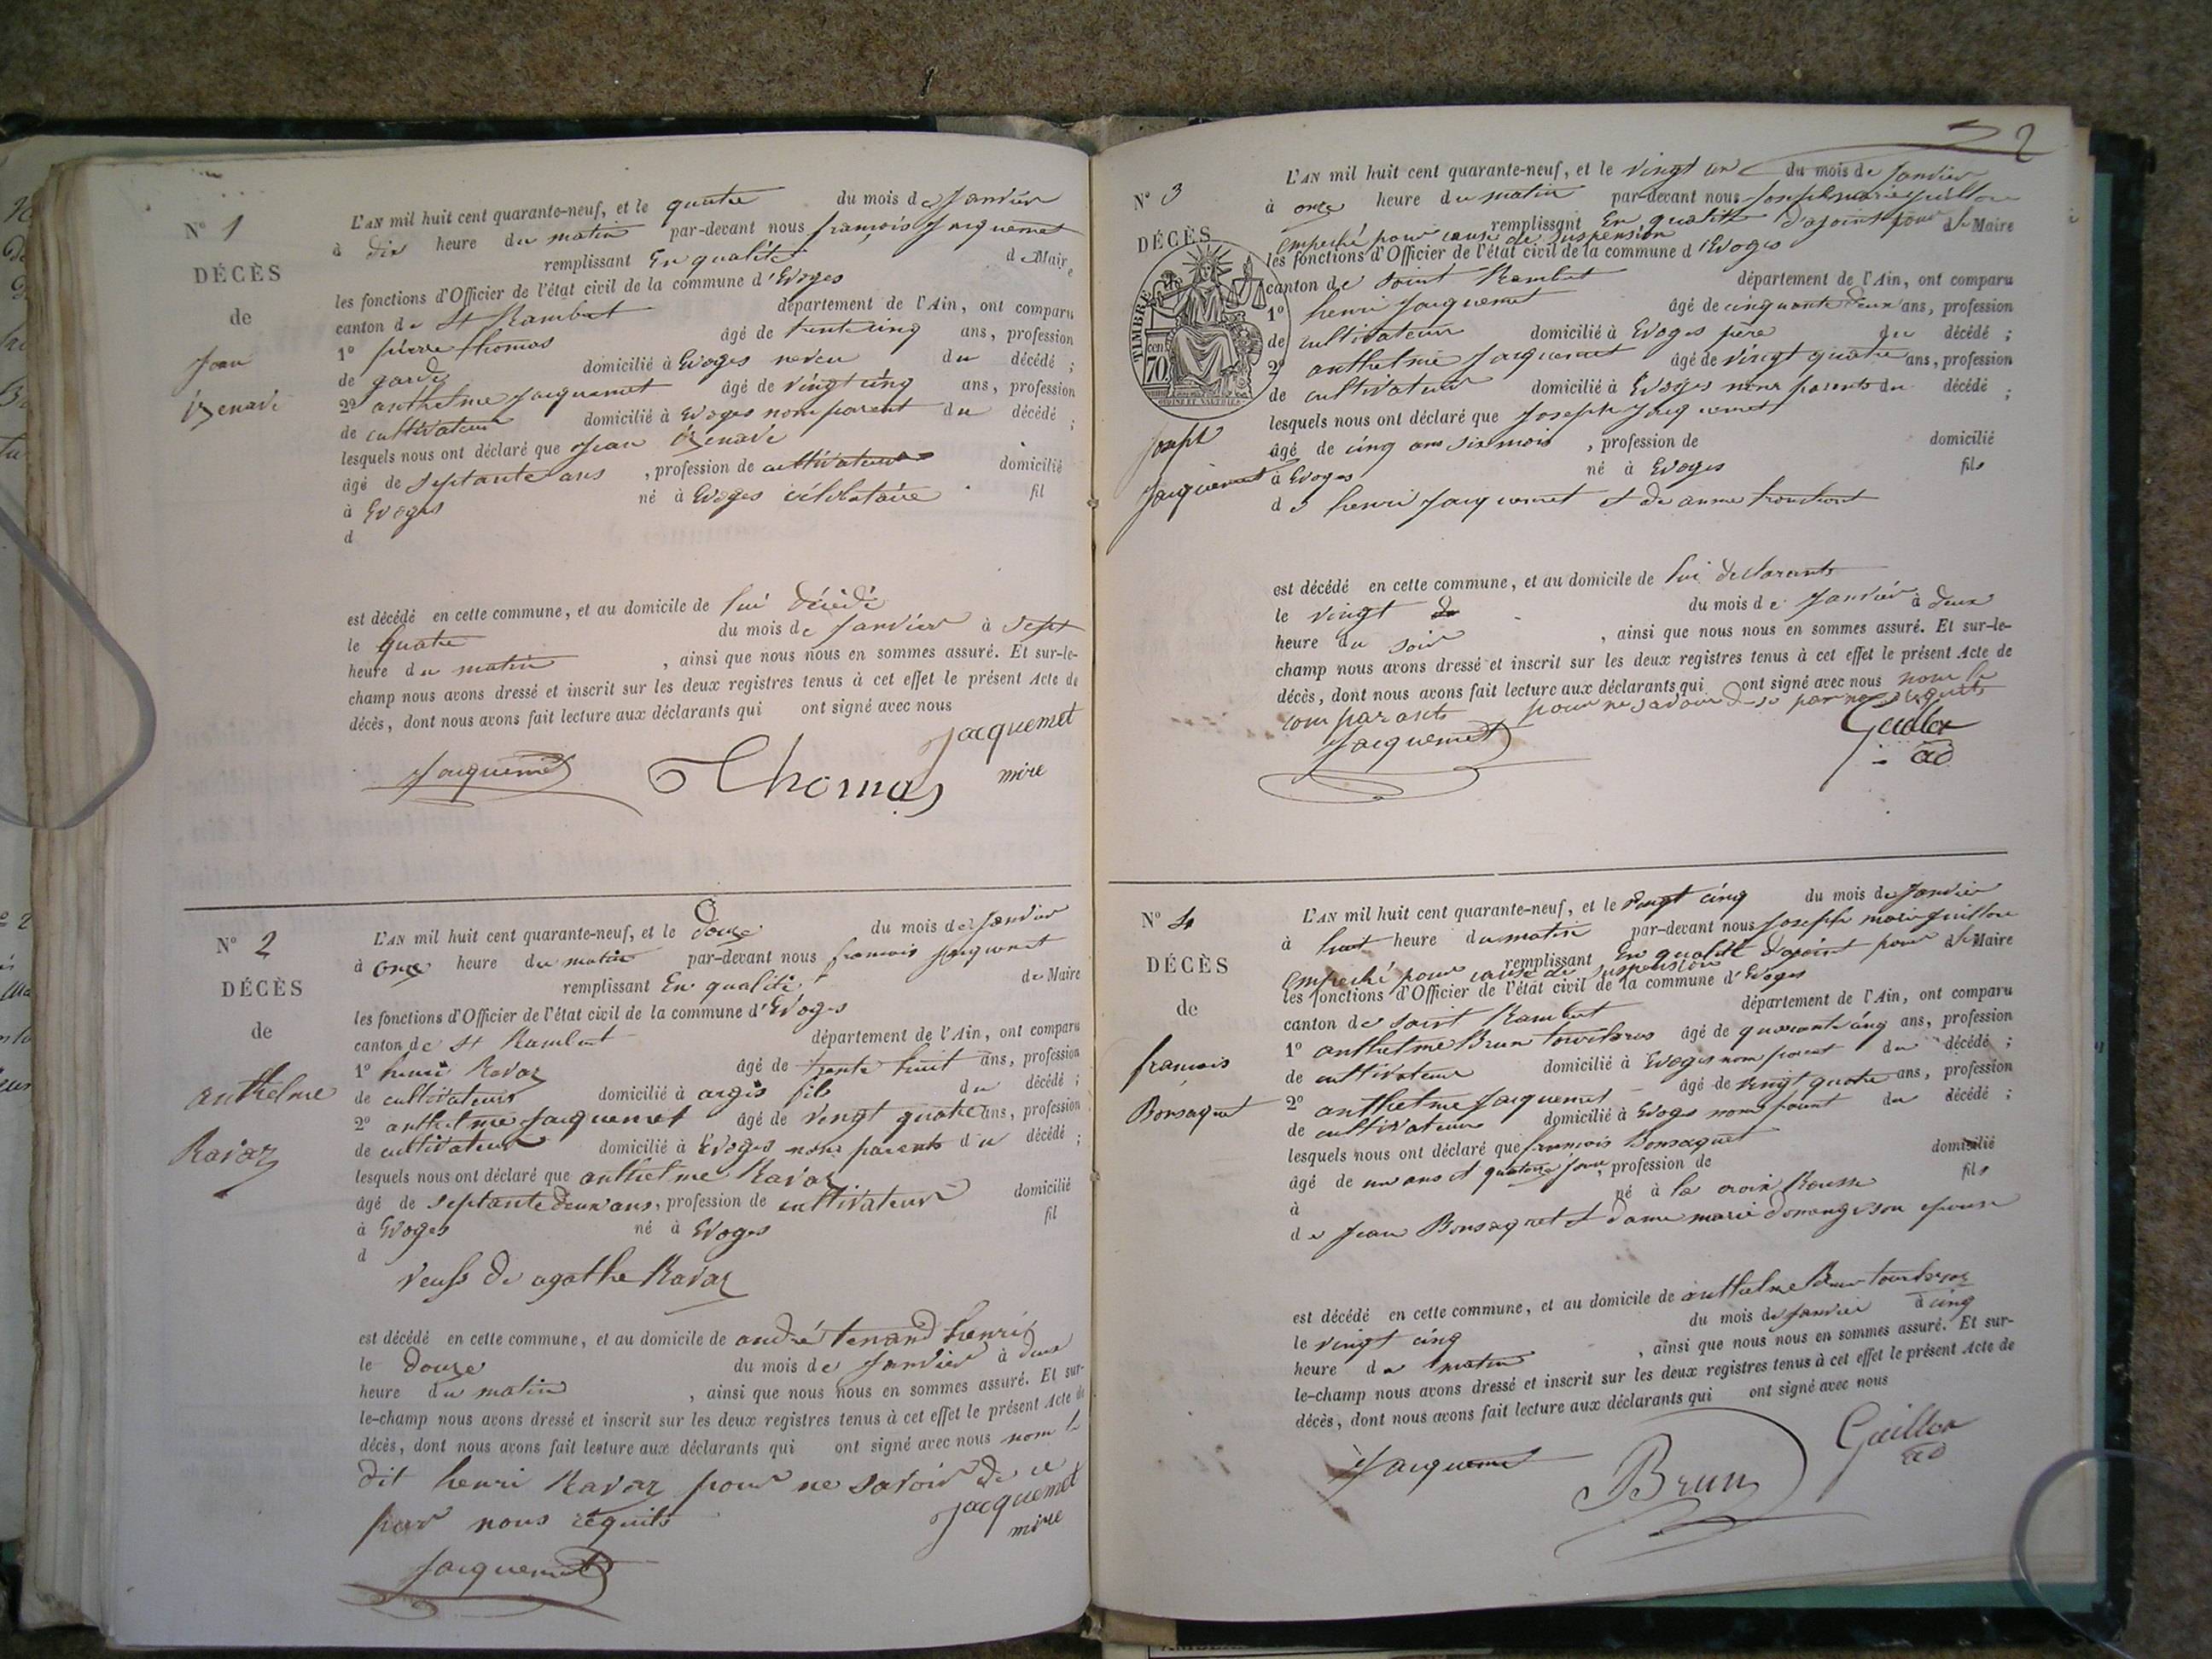 N° 1
DÉCÈS
de
Jean
L'AN mil huit cent quarante-neuf, et le quatre du mois de Janvier
à dix heure du matin par-devant nous françois Jacquemet
remplissant En qualité de Maire
les fonctions d'Officier de l'état civil de la commune d'Evoges
canton de St Rambert département de l'Ain, ont comparu
1° pierre thomas âgé de trente cinq ans, profession
de garde domicilié à Evoges neveu du décédé ;
2° anthelme Jacquemet âgé de vingt cinq ans, profession
de cultivateur domicilié à Evoges non parent du décédé ;
lesquels nous ont déclaré que Jean
âgé de septante ans , profession de cultivateur domicilié
à Evoges né à Evoges célibataire fil
d
est décédé en cette commune, et au domicile de lui décédé
le quatre du mois de Janvier à sept
heure du matin , ainsi que nous nous en sommes assuré. Et sur-le-
champ nous avons dressé et inscrit sur les deux registres tenus à cet effet le présent Acte de
décès, dont nous avons fait lecture aux déclarants qui ont signé avec nous
Jacquemet Thomas Jacquemet
mire
N° 2
DÉCÈS
de
anthelme
Ravaz
L'AN mil huit cent quarante-neuf, et le douze du mois de Janvier
à onze heure du matin par-devant nous francois Jacquemet
remplissant En qualité de Maire
les fonctions d'Officier de l'état civil de la commune d'Evoges
canton de St Rambert département de l'Ain, ont comparu
1° henri Ravaz âgé de trente huit ans, profession
de cultivateur domicilié à argis fils du décédé ;
2° anthelme Jacquemet âgé de vingt quatre ans, profession
de cultivateur domicilié à Evoges non parents du décédé ;
lesquels nous ont déclaré que anthelme Ravaz
âgé de septante deux ans, profession de cultivateur domicilié
à Evoges né à Evoges fil
d
veuf de agathe Ravaz
est décédé en cette commune, et au domicile de andré tenand henri
le douze du mois de Janvier à deux
heure du matin , ainsi que nous nous en sommes assuré. Et sur-
le-champ nous avons dressé et inscrit sur les deux registres tenus à cet effet le présent Acte de
décès, dont nous avons fait lecture aux déclarants qui ont signé avec nous nom le
dit henri Ravaz pour ne savoir de ce
par nous requits
Jacquemet
mire
Jacquemet
2
N° 3
DÉCÈS
TIMBRE
70 cen
Joseph
Jacquemet
L'AN mil huit cent quarante-neuf, et le vingt un du mois de Janvier
à onze heure du matin par-devant nous Joseph marie guillon
remplissant En qualité d'ajoint pour le Maire
Empeché pour cause de suspension
les fonctions d'Officier de l'état civil de la commune d'Evoges
canton de Saint Rambert département de l'Ain, ont comparu
1° henri Jacquemet âgé de cinquante deux ans, profession
de cultivateur domicilié à Evoges père du décédé ;
2° anthelme Jacquemet âgé de vingt quatre ans, profession
de cultivateur domicilié à Evoges non parents du décédé ;
lesquels nous ont déclaré que Joseph Jacquemet
âgé de cinq ans six mois , profession de domicilié
à Evoges né à Evoges fils
de henri Jacquemet et de anne
est décédé en cette commune, et au domicile de lui declarants
le vingt du mois de Janvier à deux
heure du soir , ainsi que nous nous en sommes assuré. Et sur-le-
champ nous avons dressé et inscrit sur les deux registres tenus à cet effet le présent Acte de
décès, dont nous avons fait lecture aux déclarants qui ont signé avec nous nom le
comparants pour ne savoir de ce par nous requits
Jacquemet Guillon
ad
N° 4
DÉCÈS
de
francois
Bonsaquet
L'AN mil huit cent quarante-neuf, et le vingt cinq du mois de Janvier
à huit heure du matin par-devant nous Joseph marie guillon
remplissant En qualité d'ajoint pour le Maire
Empeché pour cause de suspension
les fonctions d'Officier de l'état civil de la commune d'Evoges
canton de Saint Rambert département de l'Ain, ont comparu
1° anthelme Brun âgé de quarante cinq ans, profession
de cultivateur domicilié à Evoges non parent du décédé ;
2° anthelme Jacquemet âgé de vingt quatre ans, profession
de cultivateur domicilié à Evoges non parent du décédé ;
lesquels nous ont déclaré que francois Bonsaquet
âgé de un ans et quatorze jour, profession de domicilié
à né à la croix Rousse fils
de Jean Bonsaquet et dame marie
est décédé en cette commune, et au domicile de anthelme Brun
le vingt cinq du mois de Janvier à cinq
heure du matin , ainsi que nous nous en sommes assuré. Et sur-
le-champ nous avons dressé et inscrit sur les deux registres tenus à cet effet le présent Acte de
décès, dont nous avons fait lecture aux déclarants qui ont signé avec nous
Jacquemet Brun Guillon
ad